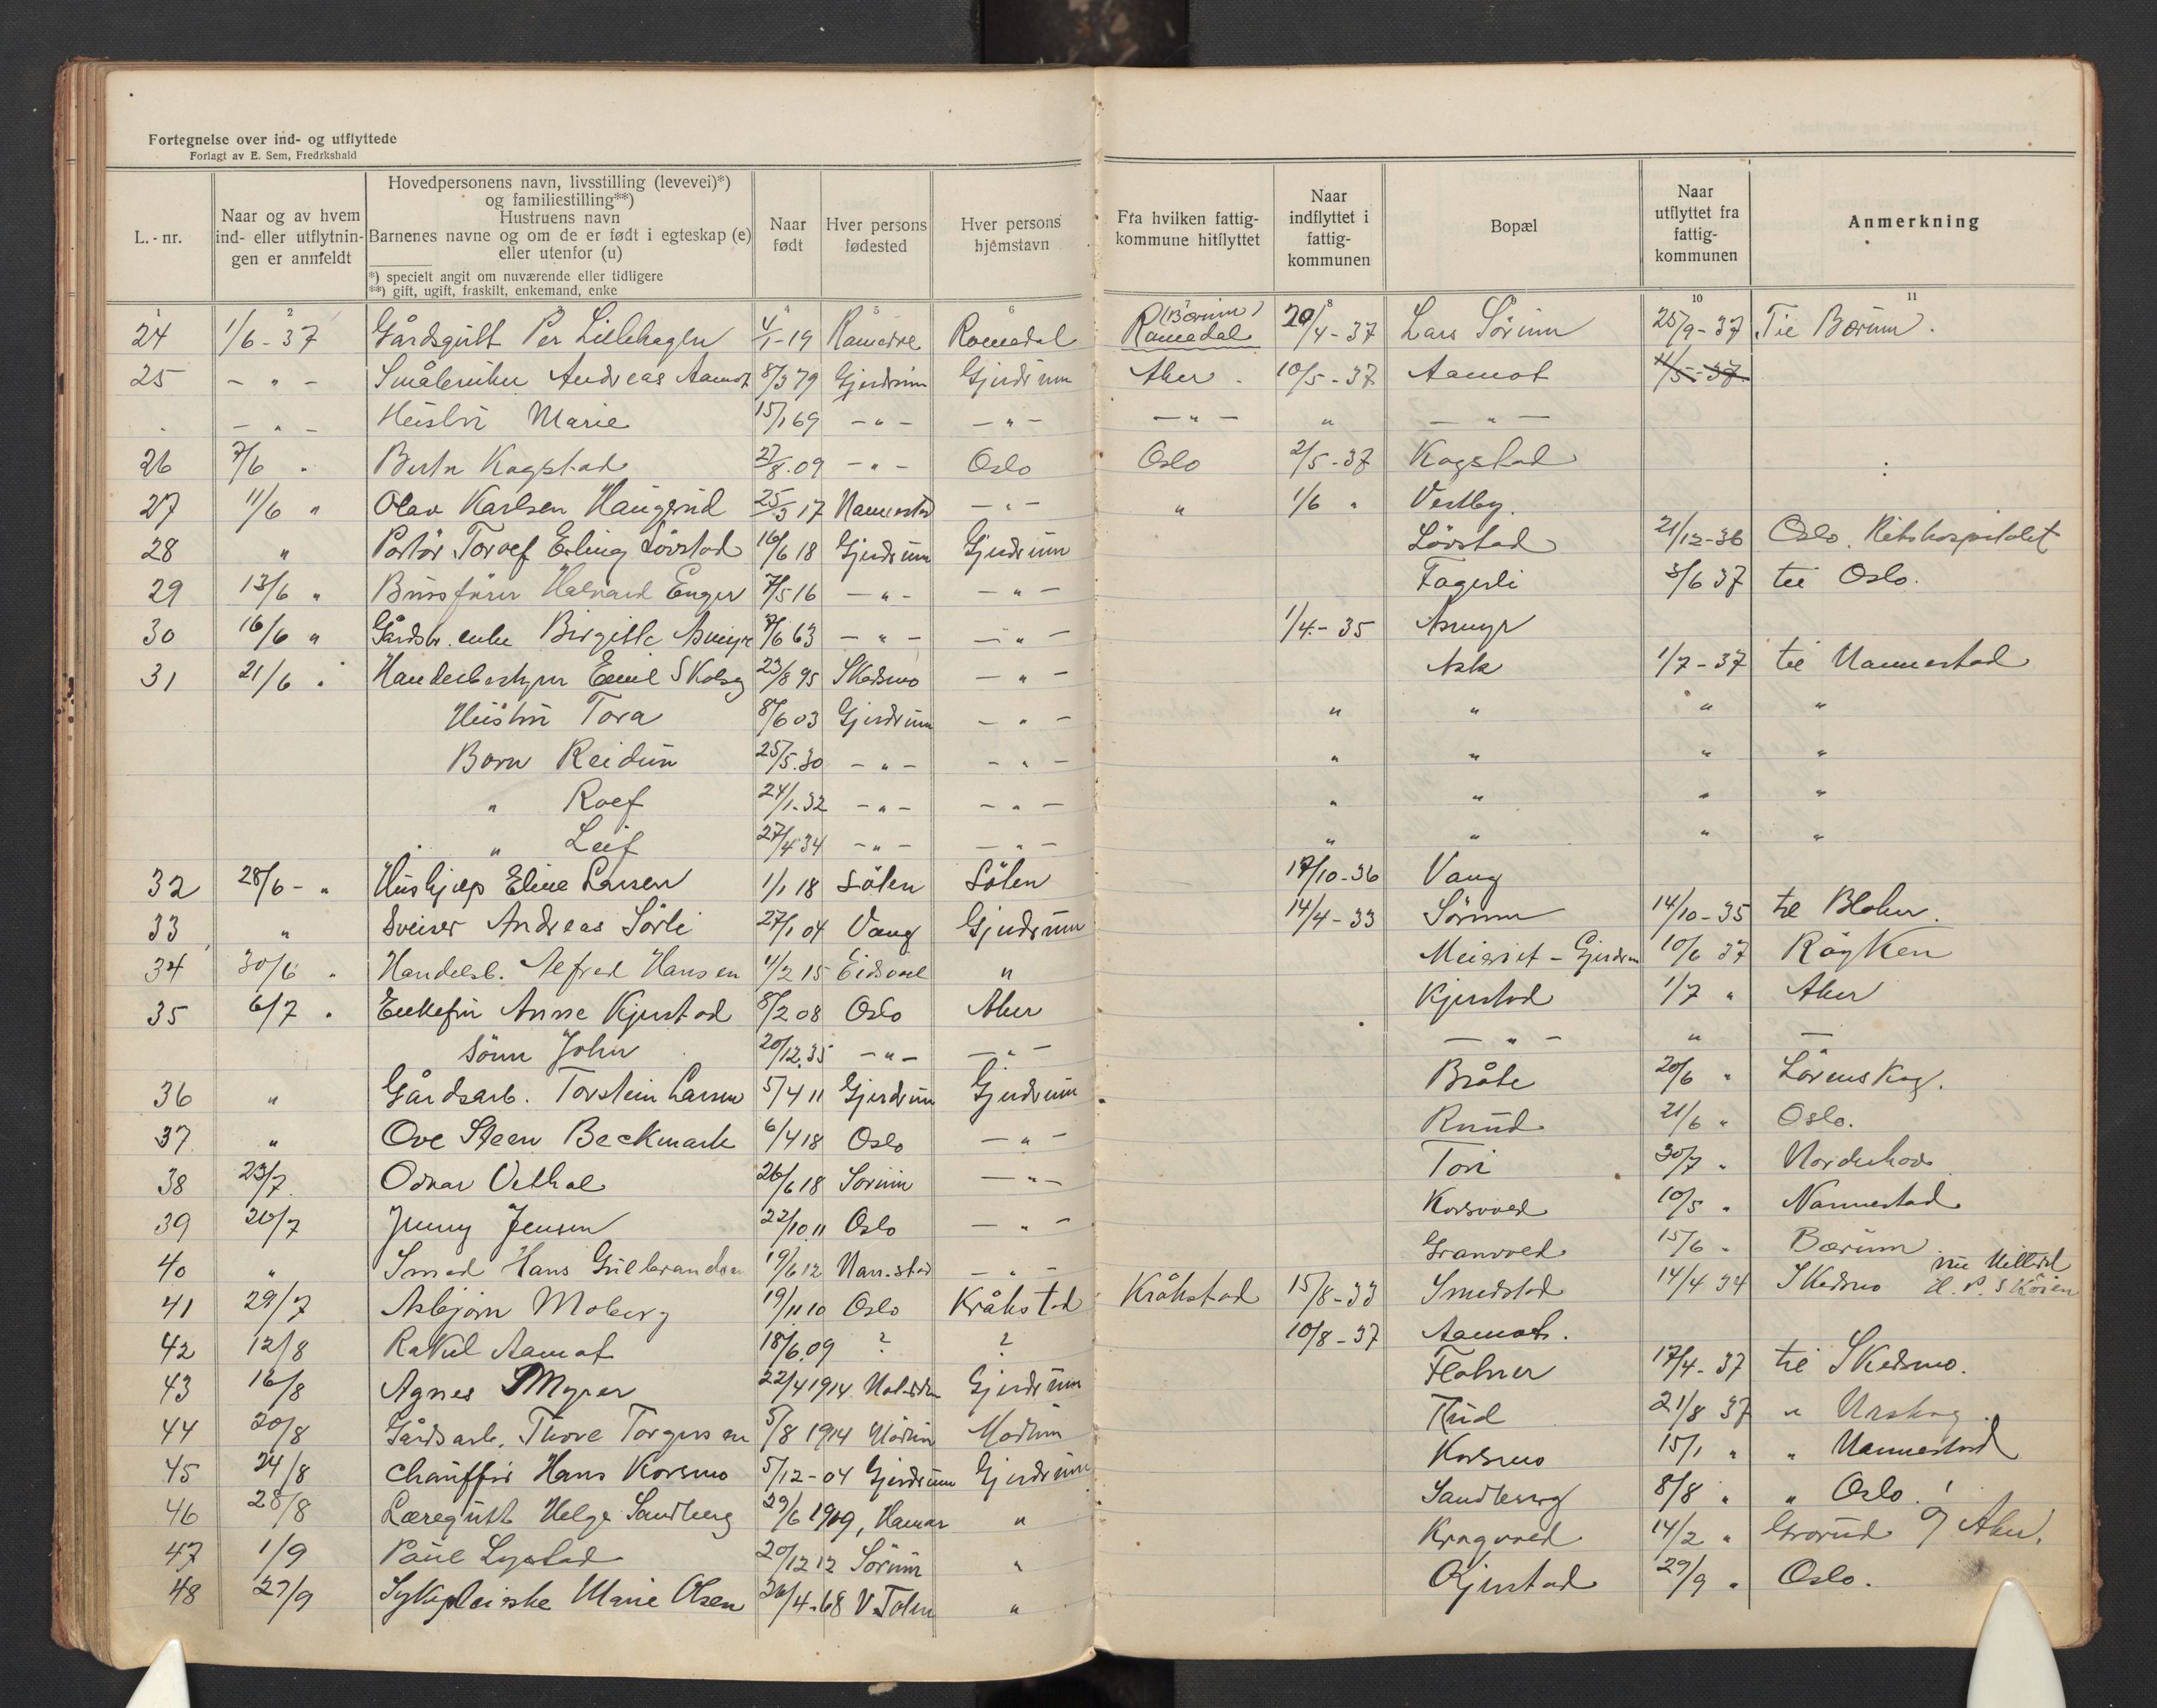 Fortegnelse over ind- og utflyttede
Forlagt av E. Sem, Fredrkshald
L.-nr.
Naar og av hvem ind- eller utflytningen er anmeldt
Hovedpersonens navn, livsstilling (levevei)*)
og familiestilling**)
Hustruens navn
Barnenes navne og om de er født i egteskap (e)
eller utenfor (u)
*) specielt angit om nuværende eller tidligere
**) gift, ugift, fraskilt, enkemand, enke
Naar født
Hver persons fødested
Hver persons hjemstavn
Fra hvilken fattigkommune hitflyttet
Naar indflyttet i fattigkommunen
Bopæl
Naar utflyttet fra fattigkommunen
Anmerkning
1 2 3 4 5 6 8 10 11
24 1/6-37 Gårdsgutt Per Lillehagen 4/1-19 Romedal (Bærum) Romedal 20/4-37 Lars Sörum 25/9-37 Til Bærum.
25 - " - Småbruker Andreas Aamot 8/3 79 Gjerdrum Gjerdrum Aker. 10/5-37 Aamot 11/5-37
- " - Hustru Marie 15/1 69 - " - - " - - " - " - " -
26 7/6 " Kogstad 27/8.09 - " - Oslo Oslo 2/5-37 Kogstad
27 11/6 " Olav Karlsen Haugerud 25/3 17 Nannestad - " - " 1/6 " Vestby.
28 " Portör Torolf Erling Lövstad 16/6 18 Gjerdrum Gjerdrum Lövstad 21/12-36 Oslo. Rikshospitalet
29 13/6 " Bussfürer Halvard Enger 7/5 16 - " - - " - Fagerli 3/6 37 til Oslo.
30 16/6 " Gårdbr. enke Birgitte Asmyr 7/6 63 - " - - " - 1/4-35 Asmyr
31 21/6 " Handelsbestyrer Emil Skolseg 23/8 95 Skedsmo - " - Ask 1/7-37 til Nannestad
Hustru Tora 8/6 03 Gjerdrum - " - " " " "
Barn Reidun 25/5.30 - " - - " - " " " "
" Rolf 24/1-32 - " - - " - " " " "
" Leif 27/4 34 - " - - " - " " " "
32 28/6- " Hushjelp Eline Larsen 1/1 18 Löten Löten 17/10-36 Vang
33 " Sveiser Andreas Sörli 27/1 04 Vang Gjerdrum 14/4-33 Sörum 14/10-35 til Blaker.
34 30/6 " Handelsb. Alfred Hansen 4/2 15 Eidsvoll " Meieriet - Gjerdrum 10/6 37 Röyken
35 6/7 " Anne Kjerstad 8/2 08 Oslo Aker Kjerstad 1/7 " Aker
Sönn John 20/12.35 - " - - " - - " - " -
36 " Gårdsarb. Torstein Larsen 5/4 11 Gjerdrum Gjerdrum Bråte 20/6 " Lörenskog.
37 " Ove Steen Beckmark 6/4 18 Oslo - " - Ruud 21/6 " Oslo.
38 23/7 Odvar Vethal 26/6 18 Sörum - " - Tori 30/7 " Norderhov
39 26/7 Jenny Jensen 22/10 11 Oslo - " - Korsvold 10/5 " Nannestad
40 " Smed Hans Gulbrandsen 19/6 12 Nan.stad - " - Granvold 15/6 " Bærum
41 29/7 Asbjörn Moberg 19/11 10 Oslo Kråkstad Kråkstad 15/8-33 Smedstad 14/4 34 Skedsmo
42 12/8 Rakel Aamot 18/6.09 ? ? 10/8-37 Aamot.
43 16/8 Agnes Myrer 22/4 1914 Gjerdrum 17/4-37 til Skedsmo.
44 20/8 Gårdsarb. Thore Torgersen 5/8 1914 Modum Modum Rud 21/8 37 " Urskog
45 24/8 Chaufför Hans Korsmo 5/12-04 Gjerdrum Gjerdrum Korsmo 15/1 " " Nannestad
46 28/8 Læregutt Helge Sandberg 29/6 1909, Hamar " Sandberg 8/8 " " Oslo!
47 1/9 Paul Lystad 20/12 12 Sörum " Kragvold 14/2 " Grorud i Aker.
48 27/9 Sykepleierske Marie Olsen 26/4-68 V.Toten " Gjerstad 29/9 " Oslo.